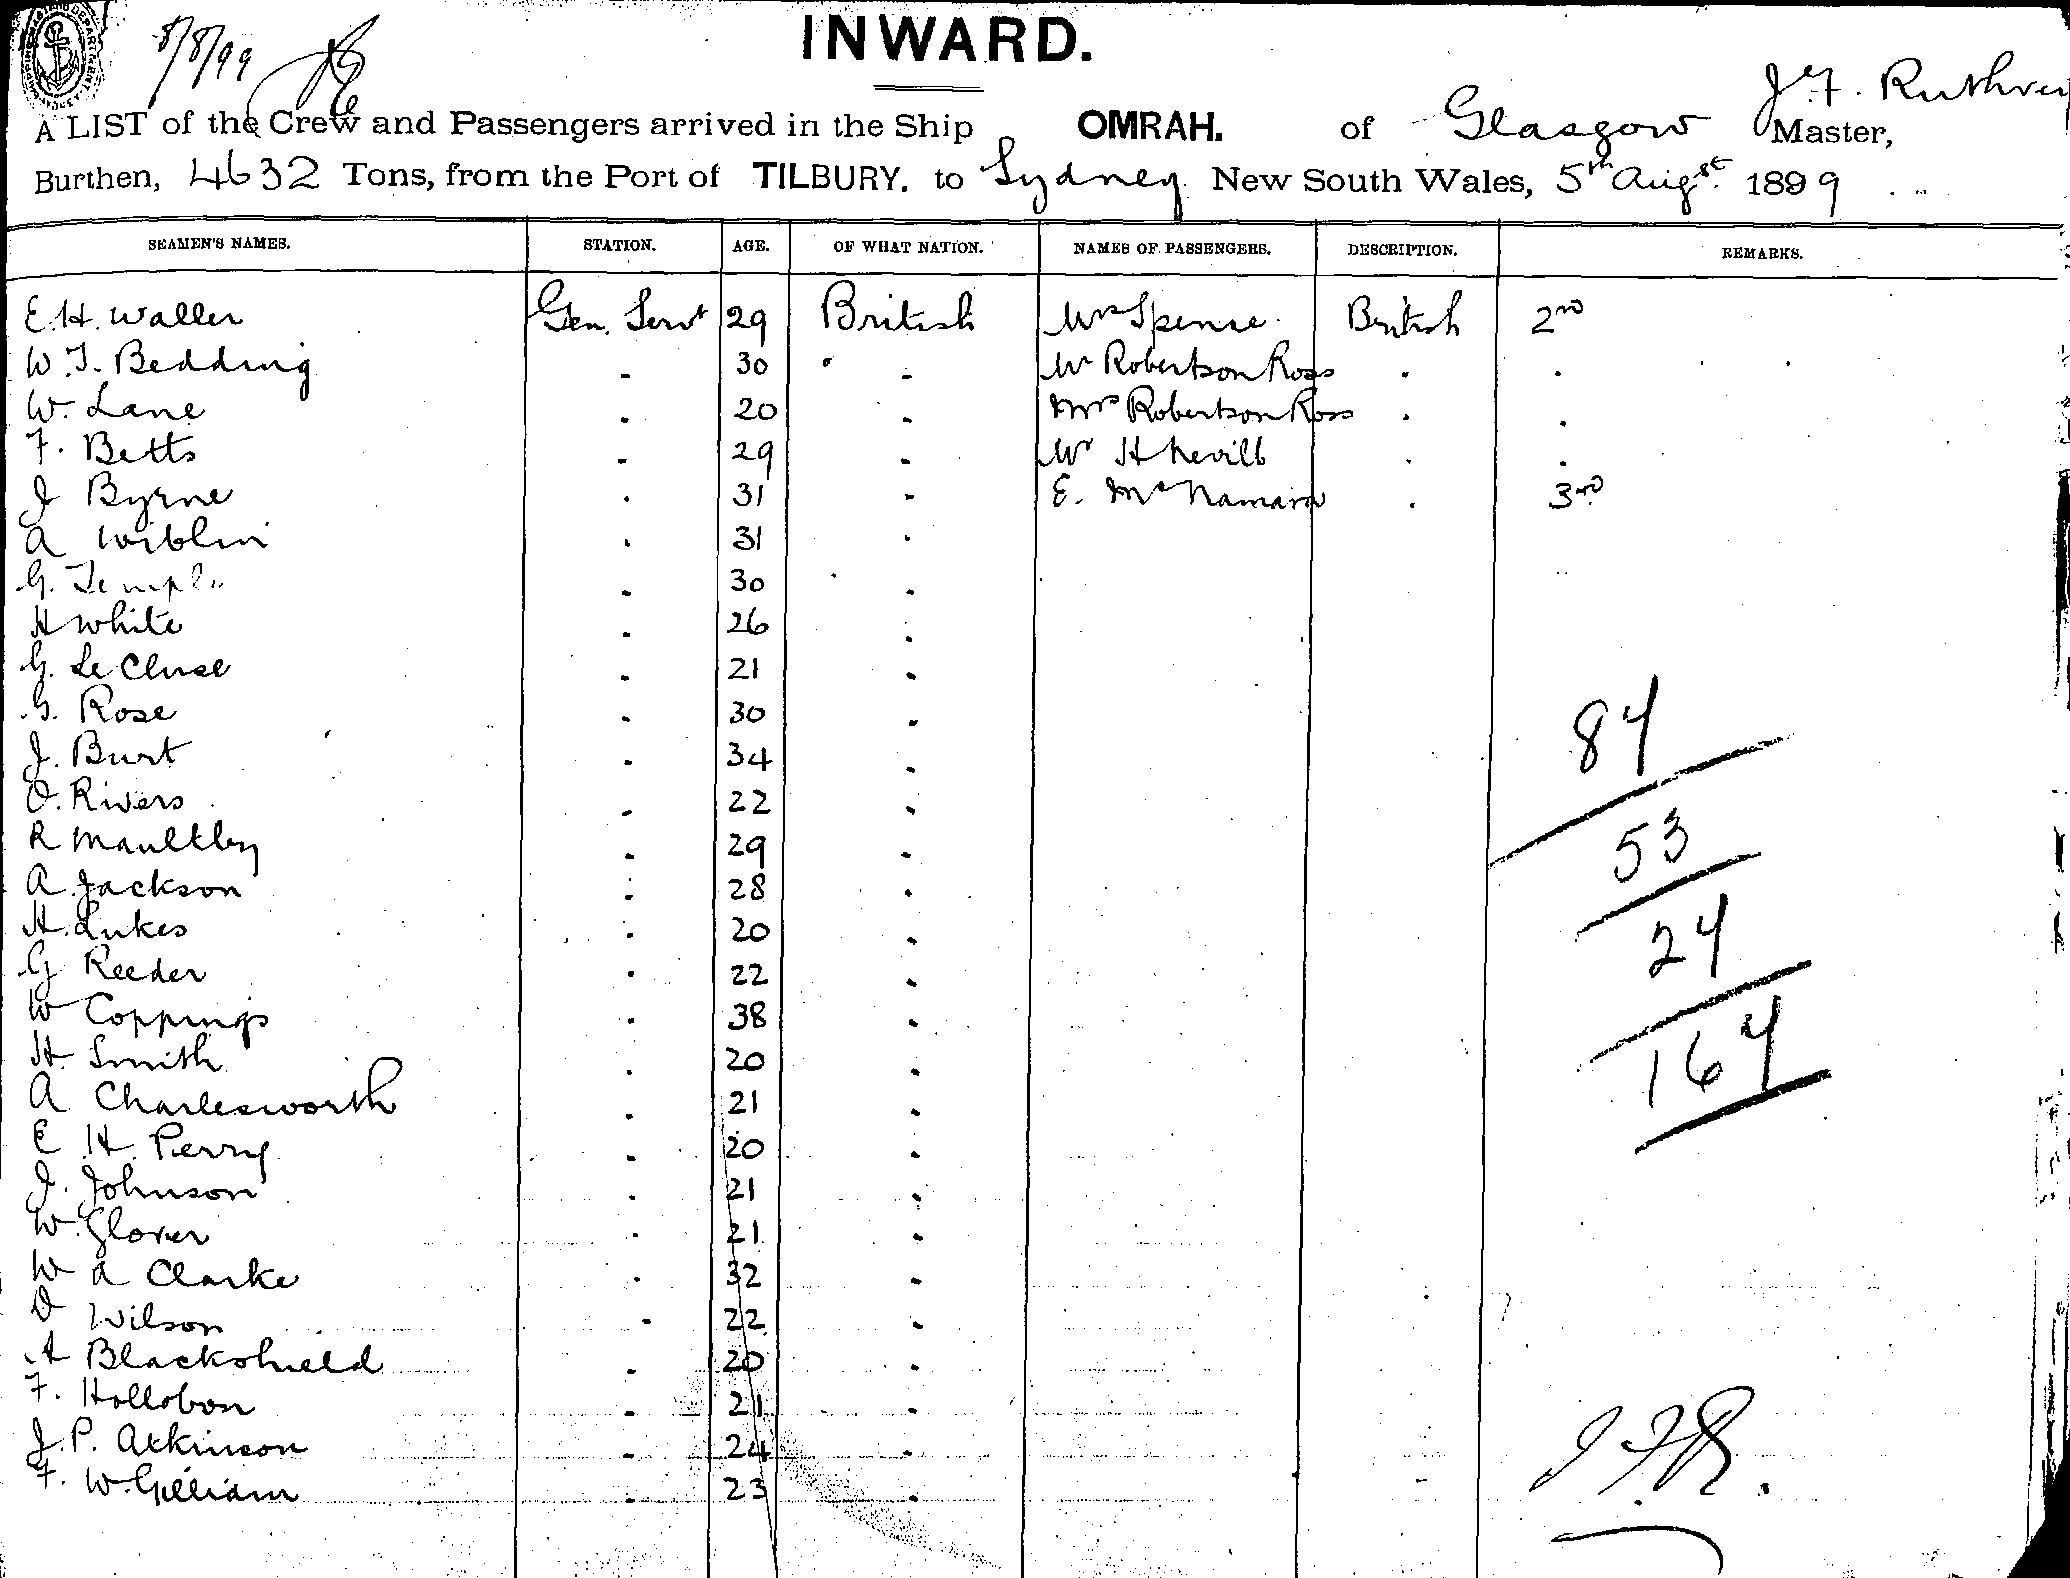 8/8/99
INWARD.
A LIST of the Crew and Passengers arrived in the Ship OMRAH. of Glasgow J. F. Ruthven Master,
Burthen, 4632 Tons, from the Port of TILBURY. to Sydney New South Wales, 5th Augst 1899
SEAMEN'S NAMES. STATION. AGE. OF WHAT NATION. NAMES OF PASSENGERS. DESCRIPTION. REMARKS.
E. H. Waller Gen. Servt 29 British Mrs Spense British 2nd
W. T. Bedding - 30 - Mr Robertson Ross . .
W. Lane . 20 - Mrs Robertson Ross . .
F. Betts - 29 - Mr H Nevill . .
J Byrne . 31 - E. McNamara . 3rd
A Wiblin . 31 .
G. Temple . 30 .
H White . 26 .
G. Le Cluse . 21 .
G. Rose . 30 .
J. Burt . 34 .
O. Rivers . 22 .
R Maultby . 29 .
A. Jackson . 28 .
H. Lukes . 20 .
G Reeder . 22 .
W Coppings . 38 .
H. Smith . 20 .
A Charlesworth . 21 .
E. H. Perry . 20 .
J. Johnson . 21 .
W. Glover . 21 .
W A Clarke . 32 .
D Wilson . 22 .
A Blackshield . 20 .
F. Hollobon . 21 .
J. P. Atkinson . 24 .
F. W. Gilliam . 23 .
84
53
24
164
J F R.